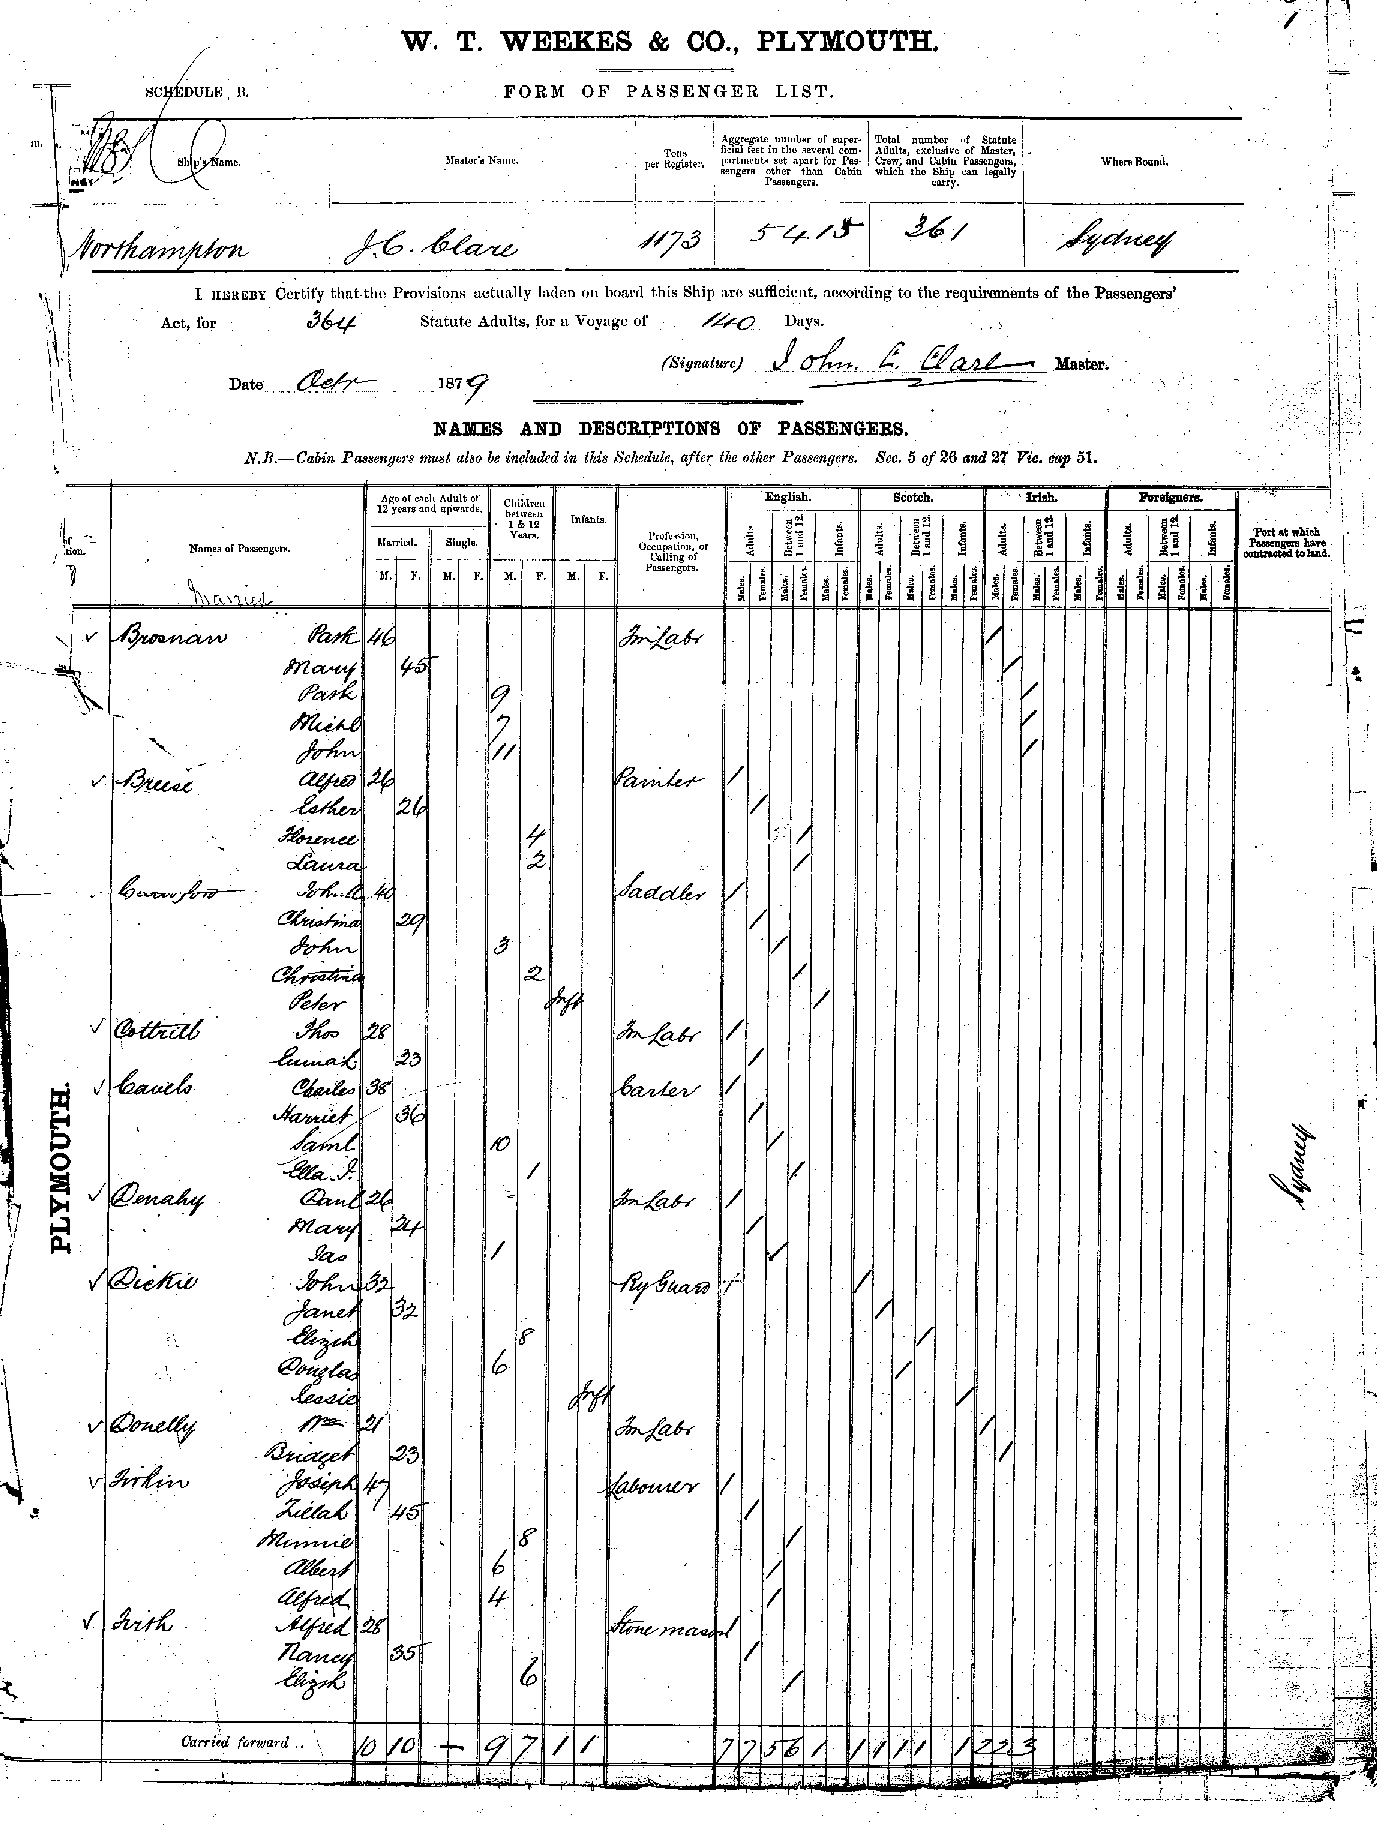 W. T. WEEKES & CO., PLYMOUTH.
SCHEDULE B. FORM OF PASSENGER LIST.
Ship's Name. Master's Name. Tons per Register. Aggregate number of superficial feet in the several compartments set apart for Passengers other than Cabin Passengers. Total number of Statute Adults, exclusive of Master, Crew, and Cabin Passengers, which the Ship can legally carry. Where Bound.
Northampton J. C. Clare 1173 5415 361 Sydney
I HEREBY Certify that the Provisions actually laden on board this Ship are sufficient, according to the requirements of the Passengers'
Act, for 364 Statute Adults, for a Voyage of 140 Days.
(Signature) John C. Clare Master.
Date Octr 1879
NAMES AND DESCRIPTIONS OF PASSENGERS.
N.B.—Cabin Passengers must also be included in this Schedule, after the other Passengers. Sec. 5 of 26 and 27 Vic. cap 51.
Names of Passengers. Age of each Adult of 12 years and upwards. Children between 1 & 12 Years. Infants. Profession, Occupation, or Calling of Passengers. English. Scotch. Irish. Foreigners. Port at which Passengers have contracted to land.
Married. Single. Adults Between 1 and 12. Infants. Adults. Between 1 and 12. Infants. Adults. Between 1 and 12. Infants. Adults. Between 1 and 12. Infants.
M. F. M. F. M. F. M. F. Males. Females. Males. Females. Males. Females. Males. Females. Males. Females. Males. Females. Males. Females. Males. Females. Males. Females. Males. Females. Males. Females. Males. Females.
Married
✓ Brosnan Patk 46 Fm Labr /
Mary 45 /
Patk 9 /
Michl 7 /
John 11 /
✓ Breese Alfred 26 Painter /
Esther 26 /
Florence 4 /
Laura 2 /
Crawford John 40 Saddler /
Christina 29 /
John 3 /
Christina 2 /
Peter Inft /
✓ Cottrell Thos 28 Fm Labr /
23 /
✓ Cavels Charles 38 Carter /
Harriet 36 /
Saml 10 /
Ella J. 1 /
✓ Denahy Danl 26 Fm Labr /
Mary 24 /
Jas 1 /
✓ Dickie John 32 Ry Guard /
Janet 32 /
Elizth 8 /
Douglas 6 /
Jessie Inft /
✓ Donelly Wm 21 Fm Labr /
Bridget 23 /
✓ Firkin Joseph 47 Labourer /
Zillah 45 /
Minnie 8 /
Albert 6 /
Alfred 4 /
✓ Frith Alfred 28 Stone mason /
Nancy 35 /
Elizth 6 /
Carried forward .. 10 10 — 9 7 1 1 7 7 5 6 1 1 1 1 1 1 2 2 3
PLYMOUTH.
Sydney